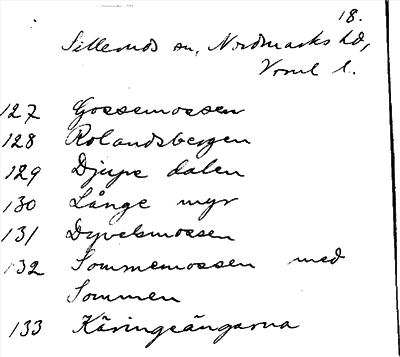 18.
Sillerud sn, Nordmarks hd,
Vrml l.
127 Gossemossen
128 Rolandsbergen
129 Djupe dalen
130 Långe myr
131 Dyvelsmossen
132 Sommemossen med
Sommen
133 Käringeängarna